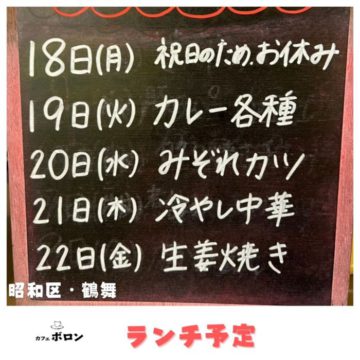 18日(月) 祝日のため、お休み
19日(火) カレー各種
20日(水) みぞれカツ
21日(木) 冷やし中華
22日(金) 生姜焼き
昭和区・鶴舞
カフェ ボロン
ランチ予定